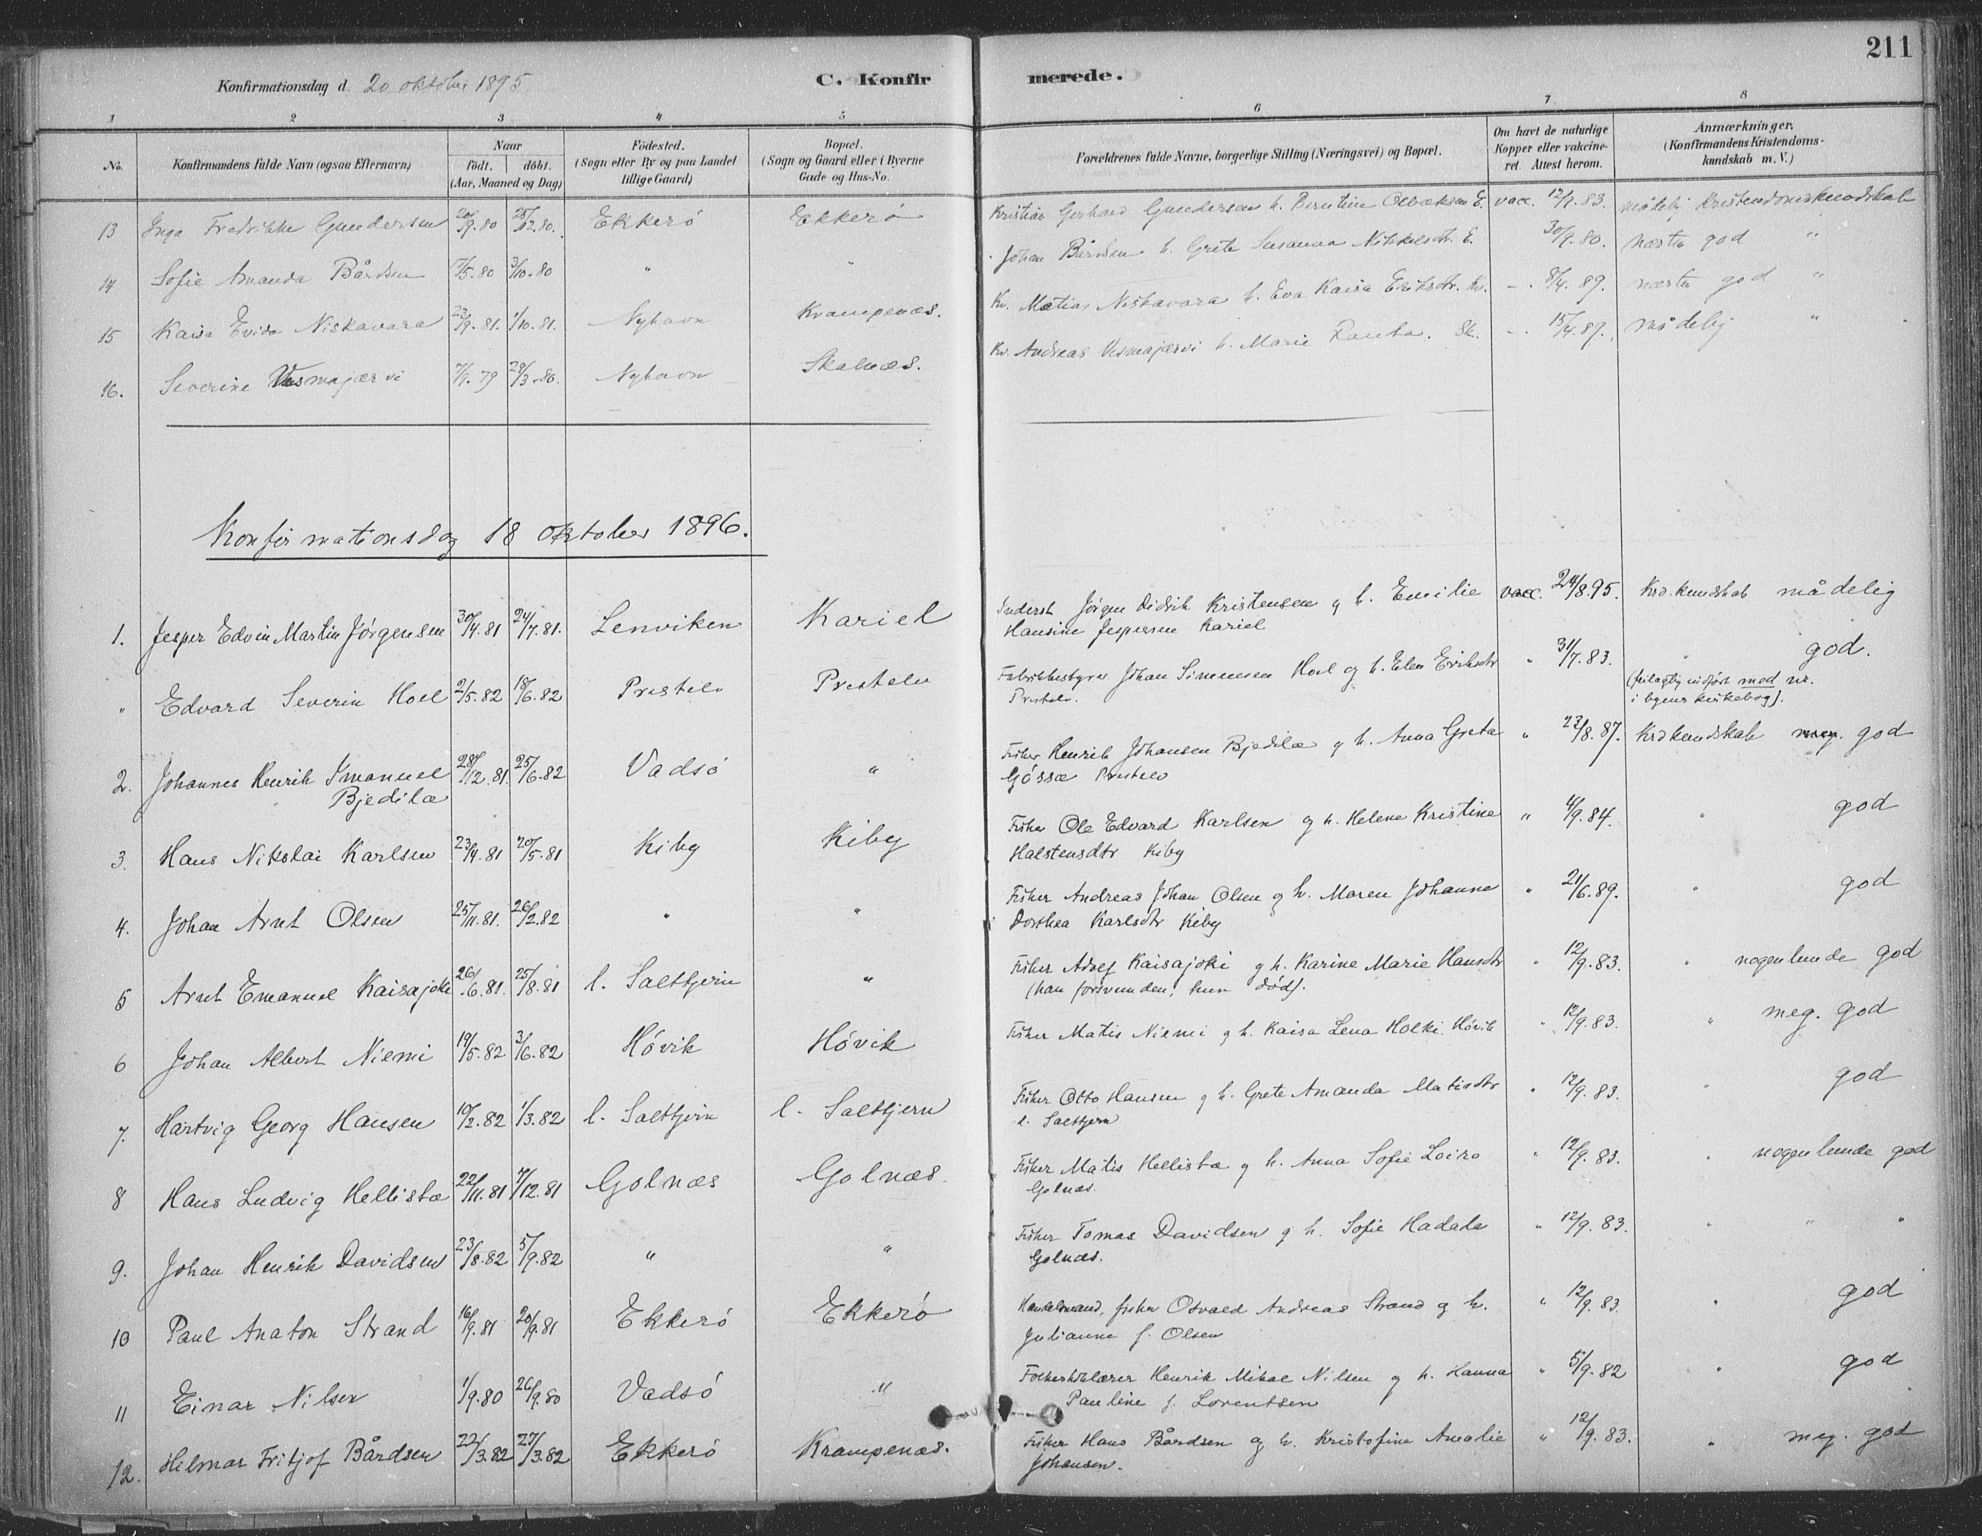 211
Konfirmationsdag d. 20 oktober 1895.
C. Konfirmerede.
1 2 3 4 5 6 7 8
No. Konfirmandens fulde Navn (ogsaa Efternavn) Naar født. døbt. (Aar, Maaned og Dag) Fødested. (Sogn eller By og paa Landet tillige Gaard) Bopæl. (Sogn og Gaard eller i Byerne Gade og Hus-No. Forældrenes fulde Navne, borgerlige Stilling (Næringsvei) og Bopæl. Om havt de naturlige Kopper eller vakcineret. Attest herom. Anmærkninger. (Konfirmandens Kristendomskundskab m. V.)
13 Inga Fredrikke Gundersen 20/9.80 25/12.80. Ekkerö Ekkerö Kristian Gerhard Gundersen h. Berntine E. vacc. 12/9.83. mådelig Kristendomskundskab
14 Sofie Amanda Bårdsen 7/5.80 3/10.80 " " Johan Bårdsen h. Grete Susanna Nikkelsdtr. E. 30/9.80. næsten god "
15 Kaisa Evida Niskavara 23/9.81. 1/10.81. Nyhavn Krampenæs. Kv. Matias Niskavara h. Eva Kaisa Eriksdtr. Kr. -. 8/4.89. næsten god "
16. Severine Vesmajærvi 7/9.79 28/3.80. Nyhavn Skalnæs. Kv. Andreas Vesmajærvi h. Marie Ranta. Sk. -. 15/4.89. mådelig "
Konfirmationsdag 18 oktober 1896.
1. Jesper Edvin Martin Jørgensen 30/4.81 24/7.81. Lenviken Kariel Inderst Jørgen Didrik Kristensen og h. Emilie vacc. 24/8.95. Krd.kundskab mådelig
Hansine Jespersen Kariel
" Edvard Severin Hoel 2/5.82 18/6.82 Prestelv Prestelv Fabrikbestyrer Johan Simensen Hoel og h. Elen Eriksdtr " 31/7.83. " god.
Prestelv. (feilagtig indført med nr. i byens kirkebog).
2. Johannes Henrik Imanuel 28/12.81. 25/6.82 Vadsö " Fisker Henrik Johansen Bjedilæ og h. Anna Greta " 23/8.87. Krdkundskab meg. god
Bjedilæ Gössæ Prestelv
3. Hans Nikolai Karlsen 23/4.81 20/5.81 Kiby Kiby Fisker Ole Edvard Karlsen og h. Helene Kristine " 4/9.84. " god
Halstensdtr Kiby
4. Johan Arnt Olsen 25/11.81. 26/2.82 " " Fisker Andreas Johan Olsen og h. Maren Johanne " 21/6.89. " god
Dorthea Karlsdtr Kiby
5 Arnt Emanuel Kaisajoki 26/6.81. 25/8.81 l. Saltjern " Fisker Adolf Kaisajoki og h. Karine Marie Hansdtr " 12/9.83. " nogenlunde god
(han forsvunden, hun død).
6 Johan Albert Niemi 19/5.82 3/6.82 Høvik Høvik Fisker Matis Niemi og h. Kaisa Lena Holki Høvik " 12/9.83. " meg. god
7. Hartvig Georg Hansen 10/2.82 1/3.82 l. Saltjern l. Saltjern Fisker Otto Hansen og h. Grete Amanda Matisdtr " 12/9.83. " god
l. Saltjern
8 Hans Ludvig Hellistæ 22/11.81 4/12.81 Golnæs Golnæs. Fisker Matis Hellistæ og h. Anna Sofie Loiro " 12/9.83. " nogenlunde god
Golnæs.
9. Johan Henrik Davidsen 23/8.82 5/9.82 " " Fisker Tomas Davidsen og h. Sofie Hadala " 12/9.83. " " "
Golnæs.
10 Paul Anaton Strand 16/9.81 20/9.81 Ekkerö Ekkerö Handelsmand, fisker Osvald Andreas Strand og h. " 12/9.83. " god
Julianne f. Olsen
11 Einar Nilsen 1/9.80 26/9.80 Vadsö " Folkeskolelærer Henrik Mikal Nilsen og h. Hanna " 5/9.82 " god
Pauline f. Lorentsen
12. Hilmar Fritjof Bårdsen 22/3.82 27/3.82 Ekkerö Krampenæs. Fisker Hans Bårdsen og h. Kristofine Amalie " 12/9.83. " meg. god
Johansen.